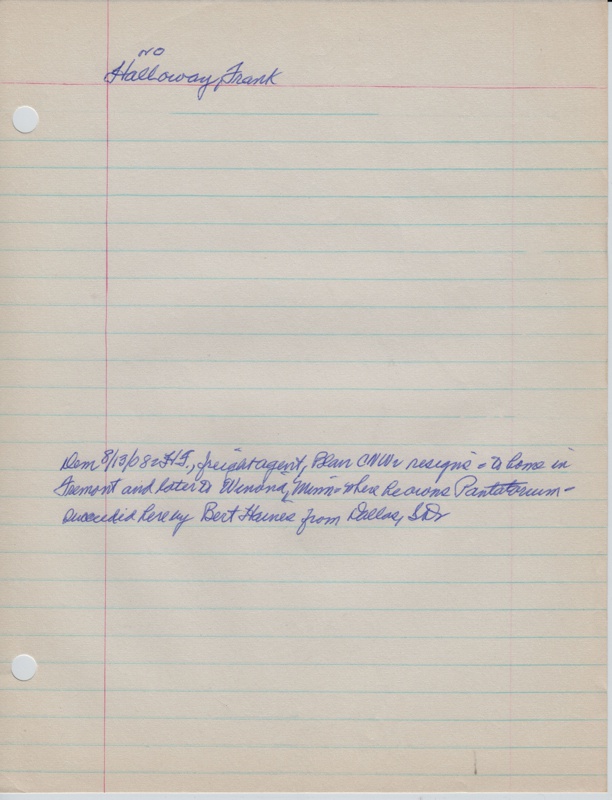 NO
Halloway, Frank
Dem 8/13/08 = H.F., freight agent, Blair CNW resigns = to home in
Fremont and later to Winona, Minn = where he owns Pantatorium =
succeeded here by Bert Haines from Dallas, SD